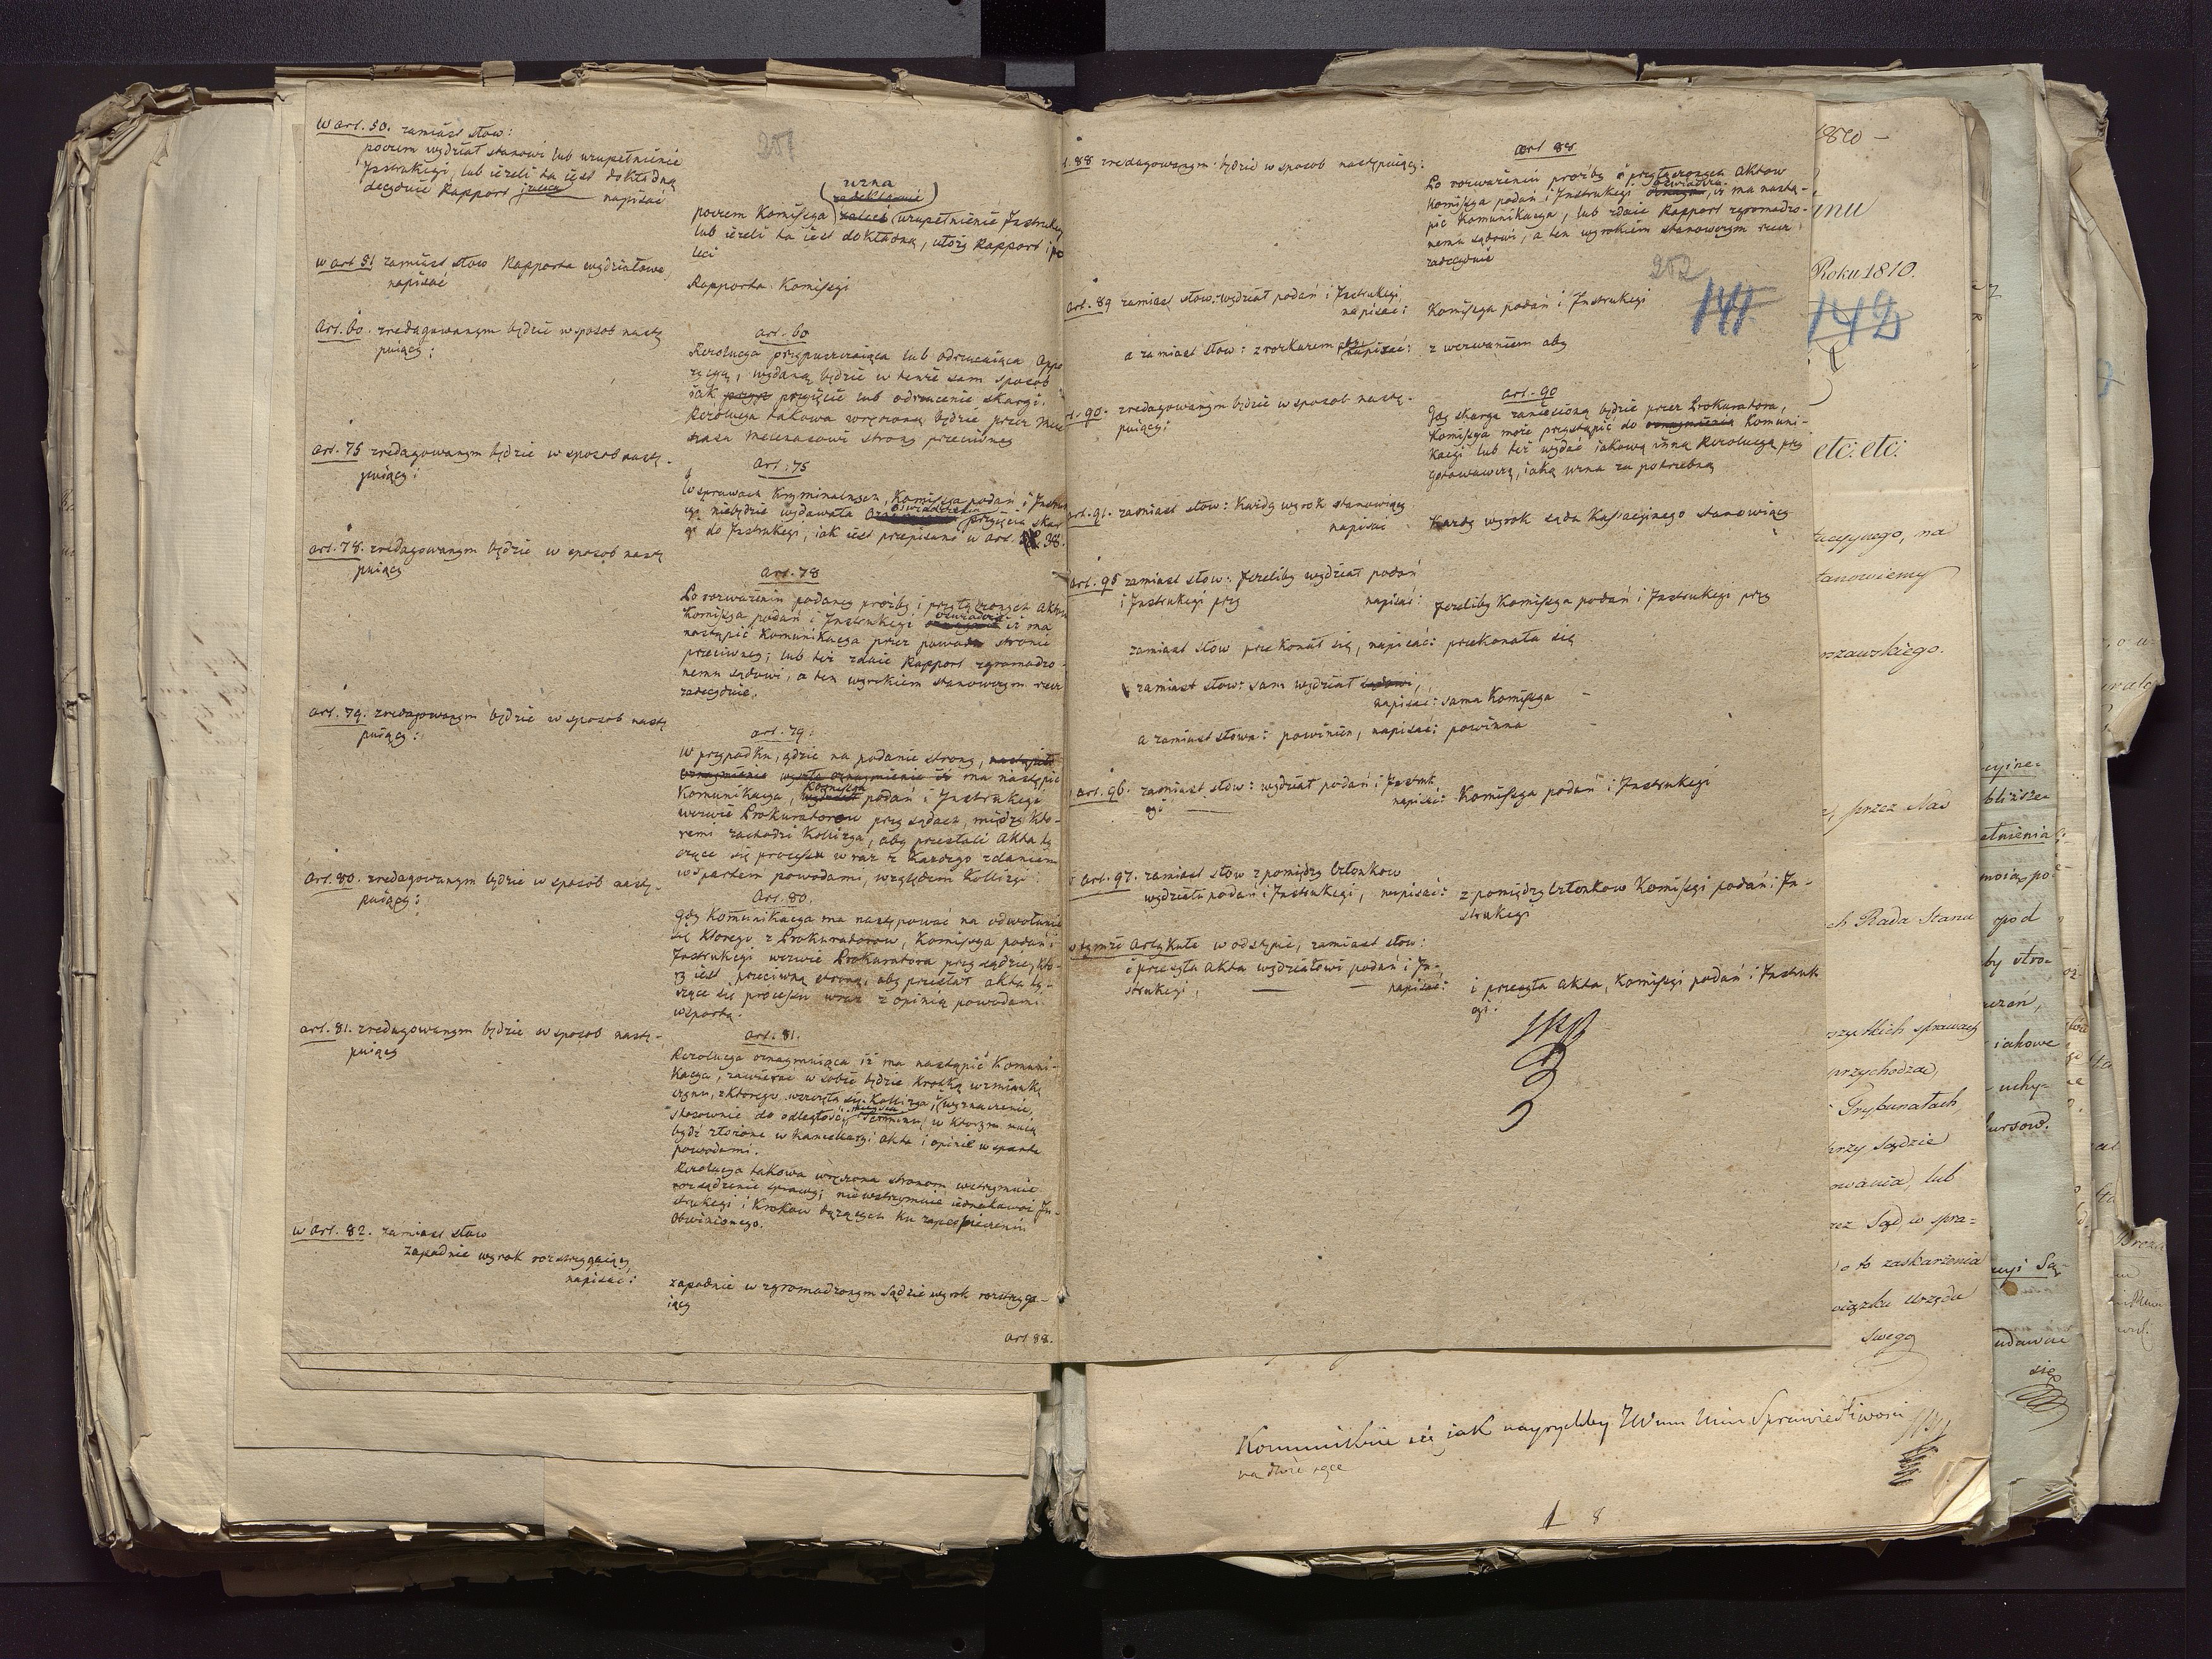 201
w art. 50. zamiast słow:
poczem wydział stanowi lub uzupełnienie
Instrukcyi, lub ieżeli ta iest dokładną
decyduie Rapport napisać
uzna
poczem Komissya zaleci uzupełnienie Instrukcyi
lub ieżeli ta iest dokładną, ułoży Rapport i po
leci
w art 51 zamiast słow Rapporta wydziałowe,
napisać
Rapporta Komissyi
Art. 60. zredagowanym będzie w sposob nastę
puiący:
art. 60
Rezolucya przypuszczaiąca lub odrzucaiąca Appe
zycyą, wydaną będzie w tenże sam sposob
iak przyięcie lub odrzucenie skargi.
Rezolucya takowa wręczoną będzie przez Mece
nasa Mecenasowi strony przeciwney
Art. 75 zredagowanym będzie w sposob nastę-
puiący:
Art. 75
W sprawach Kryminalnych, Komissya podań i Instru
cyi niebędzie wydawała oświadczenia przyięcia skar
gi do Instrukcyi, iak iest przepisano w art. 38.
Art. 78. zredagowanym będzie w sposob nastę
puiący
Art. 78
Po rozważeniu podaney prośby i przyłączonych Aktow
Komissya podań i Instrukcyi oświadcza iż ma
nastąpić Komunikacya przez powoda stronie
przeciwney; lub też zdaie Rapport zgromadzo-
nemu sądowi, a ten wyrokiem stanowczym rzecz
zadecyduie.
Art. 79. zredagowanym będzie w sposob nastę
puiący:
art. 79:
W przypadku, gdzie na podanie strony, nastąpiło
oznaymienie wyszło oznaymienie iż ma nastąpić
Komunikacya, Komissya podań i Instrukcyi
wezwie Prokuratorow przy sądach, między kto-
remi zachodzi Kollizya, aby przesłali Akta ty
czące się processu wraz z Każdego zdaniem
wspartem powodami, względem Kollizyi.
Art. 80. zredagowanym będzie w sposob nastę-
puiący:
Art. 80.
Gdy Komunikacya ma następować na odwołanie
się ktorego z Prokuratorow, Komissya podań i
Instrukcyi wezwie Prokuratora przy sądzie, kto-
ry iest przeciwną stroną, aby przesłał akta ty-
czące się processu wraz z opinią powodami
wspartą.
art. 81. zredagowanym będzie w sposob nastę-
puiący
art. 81.
Rezolucya oznaymuiąca iż ma nastąpić Komuni-
kacya, zawierać w sobie będzie krotką wzmiankę
czynu, z ktorego wszczęła się Kollizya, i wyznaczenie,
stosownie do odległości mieysca Terminu, w ktorym maią
bydź złożone w Kancellaryi Akta i opinie wsparte
powodami.
Rezolucya takowa wręczona stronom wstrzymuie
rozsądzenie sprawy; niewstrzymuie iednakowoż In-
strukcyi i Krokow dążących ku zapezpieczeniu
Obwinionego.
w Art. 82. zamiast słow
zapadnie wyrok rozstrzygaiący,
napisać:
zapadnie w zgromadzonym Sądzie wyrok rozstrzyga-
iący
art 88.
t. 88 zredagowanym będzie w sposob następuiący:
art 88
Po rozważeniu prośby i przyłączonych Aktow
Komissya podań i Instrukcyi oświadcza, iż ma nastą-
pić Komunikacya, lub zdaie Rapport zgromadzo-
nemu sądowi, a ten wyrokiem stanowczym rzecz
zadecyduie
202
141
Art. 89 zamiast słow: wydział podań i Instrukcyi
napisać:
Komissya podań i Instrukcyi
a zamiast słow: z rozkazem aby napisać:
z wezwaniem aby
rt. 90. zredagowanym będzie w sposob nastę-
puiący:
Art. 90
Gdy skarga zaniesioną będzie przez Prokuratora,
Komissya może przystąpić do oznaymienia Komuni-
kacyi lub też wydać iakową inną Rezolucyą przy
gotowawczą, iaką uzna za potrzebną
Art. 91. zamiast słow: Każdy wyrok stanowiący
napisać
Każdy wyrok sądu Kassacyinego stanowiący
Art. 95 zamiast słow: Jeżeliby wydział podań
i Instrukcyi przy napisać:
Jeżeliby Komissya podań i Instrukcyi przy
zamiast słow przekonał się, napisać: przekonała się
zamiast słow: sam wydział sądowi,
napisać: sama Komissya
a zamiast słowa: powinien, napisać: powinna
art. 96. zamiast słow: wydział podań i Instruk
cyi napisać:
Komissya podań i Instrukcyi
art. 97. zamiast słow z pomiędzy Członkow
wydziału podań i Instrukcyi, napisać:
z pomiędzy Członkow Komissyi podań i In-
strukcyi
w tymże Artykule w odstępie, zamiast słow:
i przeszła Akta wydziałowi podań i In-
strukcyi, napisać:
i przeszła Akta, Komissyi podań i Instruk
cyi.
Kommunikuie się jak nayrychley JWmu Min Sprawiedliwosci
na dwie ręce
1 8
1810 -
Roku 1810.
142
etc: etc:
tucyynego, na
tanowiemy
rszawskiego.
przez Nas
ch Rada Stanu
szystkich sprawach
przychodzać,
Trybunałach,
przy Sądzie
owania, lub
rzez Sąd, w spra=
o to zaskarżenia
wiązku Urzędu
Swego
cyine=
bliższe
ełnienia
pod
by stro=
iakowe
uchy=
kursow.
udawać
się